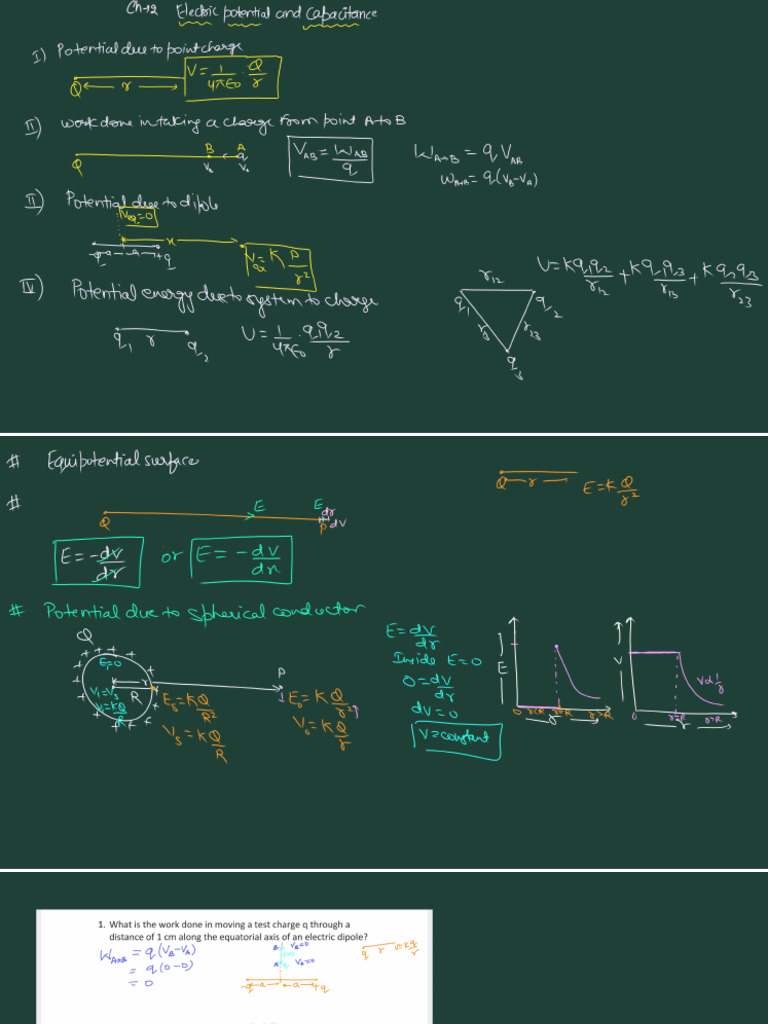 Ch-12 Electric potential and Capacitance
I) Potential due to point charge
Q r V = 1/4πε0 · Q/r
II) work done in taking a charge from point A to B
Q B A q VB VA VAB = WAB/q WA→B = q VAB
WA→B = q(VB-VA)
II) Potential due to dipole
Veq=0
x
-q a a +q Vax = K P/r²
IV) Potential energy due to system to charge
q1 r q2 U = 1/4πε0 · q1q2/r
U = Kq1q2/r12 + Kq1q3/r13 + Kq2q3/r23
r12
q1 q2
r23
q3
# Equipotential surface
Q r E = K Q/r²
#
Q E E dr P dV
E = -dV/dr or E = -dV/dr
# Potential due to spherical conductor
Q
E=0
r
Vi=Vs
V=KQ/R
R
P
Es = K Q/R²
Vs = K Q/R
E0 = K Q/r²
V0 = K Q/r
E = dV/dr
Inside E=0
0 = dV/dr
dV=0
V=constant
E
0 r<R r=R r>R
r
V
V∝1/r
0 r=R r>R
r
1. What is the work done in moving a test charge q through a
distance of 1 cm along the equatorial axis of an electric dipole?
WA→B = q(VB-VA)
= q(0-0)
= 0
B VB=0
1cm
A q VA=0
-q a a +q
q r V=Kq/r